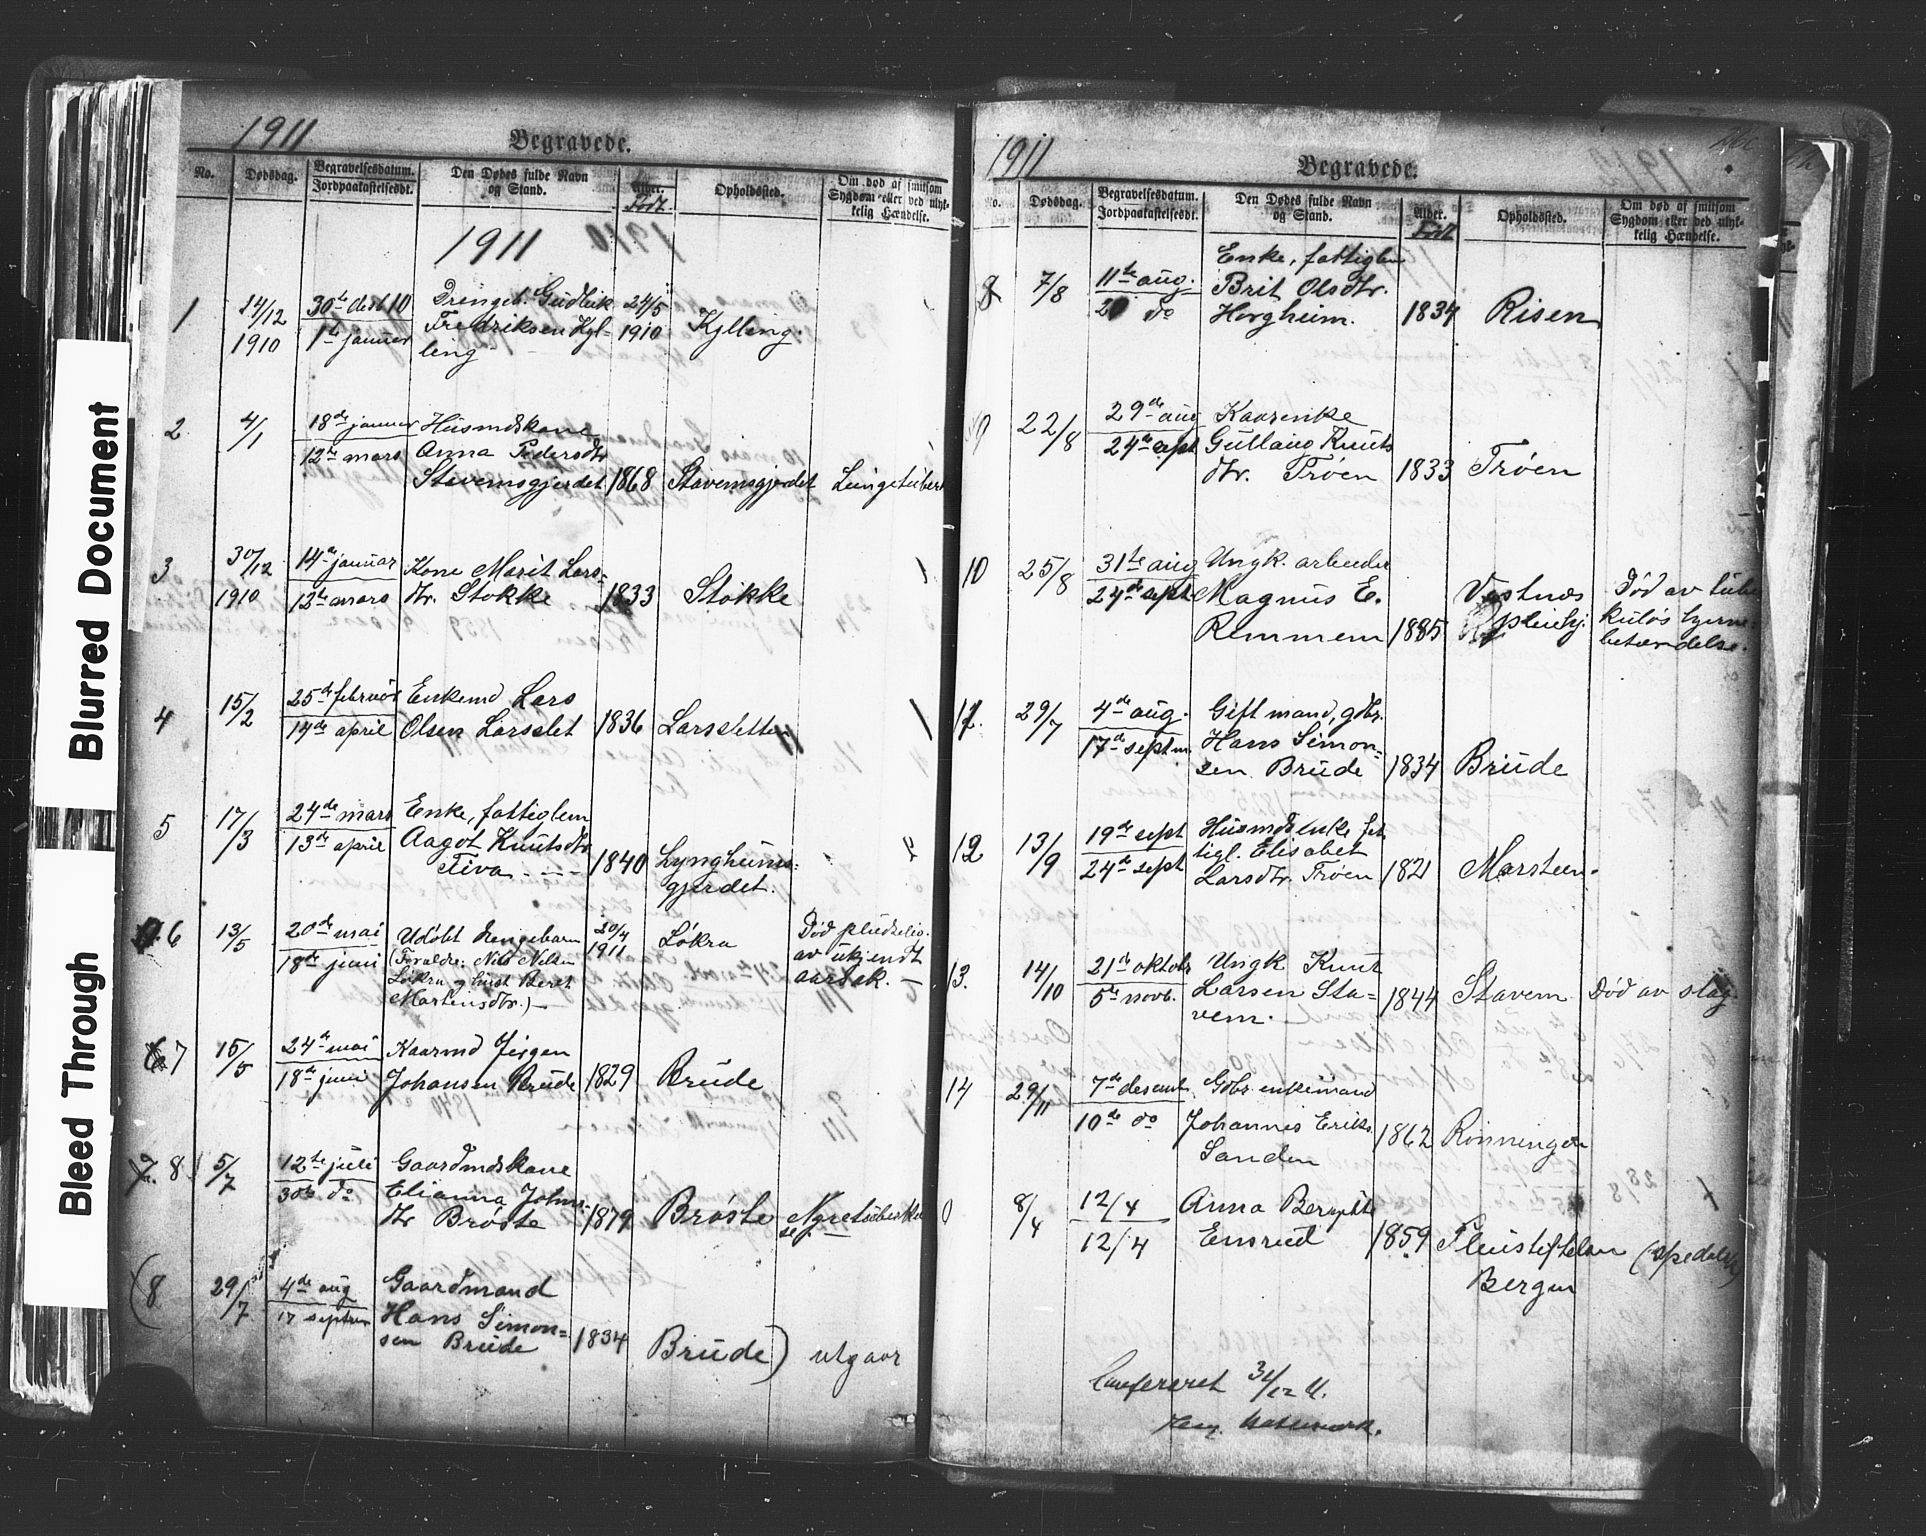 Blurred Document
Bleed Through
1911
Begravede.
No.
Dødsdag.
Begravelsesdatum.
Jordpaakastelsesdt.
Den Dødes fulde Navn
og Stand.
Alder.
Født.
Opholdssted.
Om død af smitsom
Sygdom eller ved ulyk-
kelig Hændelse.
1911
1
24/12
1910
30te desb 10
1ste januar
Drengeb. Gudleik
Fredriksen Kyl-
ling
24/5
1910
Kylling.
2
4/1
18de januar
12te mars
Husmdskone
Anna Pedersdtr
Stavemsgjerdet
1868
Stavemsgjerdet
Lungetuberk
3
30/12
1910
14de januar
12te mars
Kone Marit Lars-
dtr. Stokke
1833
Stokke
4
15/2
25de februar
14de april
Enkemd Lars
Olsen Larsslet
1836
Larsslette
5
17/3
24de mars
13de april
Enke, fattiglem
Aagot Knutsdtr
Tiva
1840
Lyngheims-
gjerdet.
6
13/5
20de mai
18de juni
Udøbt
(Foraldre: Nils Nilsen
Løkra og hust Beret
Martinsdtr.)
30/4
1911
Løkra
Død pludselig
av ukjendt
aarsak.
7
15/5
24de mai
18de juni
Kaarmd Jørgen
Johansen Brude
1829
Brude
8
5/7
12te juli
30te do
Gaardmdskone
Elianna Johns-
dtr Brøste
1879
Brøste
Nyretuberku
(8
29/7
4de aug
17 septem
Gaardmand
Hans Simon-
sen Brude
1834
Brude)
utgaar
1911
Begravede.
No.
Dødsdag.
Begravelsesdatum.
Jordpaakastelsesdt.
Den Dødes fulde Navn
og Stand.
Alder.
Født
Opholdssted.
Om død af smitsom
Sygdom eller ved ulyk-
kelig Hændelse.
8
7/8
11te aug.
20 do
Enke, fattiglem
Brit Olsdtr.
Horgheim.
1834
Risen
9
22/8
29de aug
24de sept
Kaarenke
Gullaug Knuts
dtr. Trøen
1833
Trøen
10
25/8
31te aug
24de sept
Ungk. arbeider
Magnus E.
Remmem
1885
Vestnes
pleiehj.
Død av tube
kuløs hjerne-
betændelse.
29/7
4de aug.
17de septm
Gift mand, gdbr.
Hans Simon-
sen Brude
1834
Brude
12
13/9
19de sept
24de sept
Husmdsenke fat
tigl. Elisabet
Larsdtr. Trøen
1821
Marsteen.
13.
14/10
21de oktobr
5te novb.
Ungk Knut
Larsen Sta-
vem.
1844
Stavem
Død av slag
14
29/11
7de desemb
10de do
Gdbr. enkemand
Johannes Eriks
Sanden
1862
Rønningen
0
8/4
12/4
12/4
Anna
Ensrud
1859
Pleiestiftelsen
Bergen
(spedalsk)
Confereret 31/12 11.